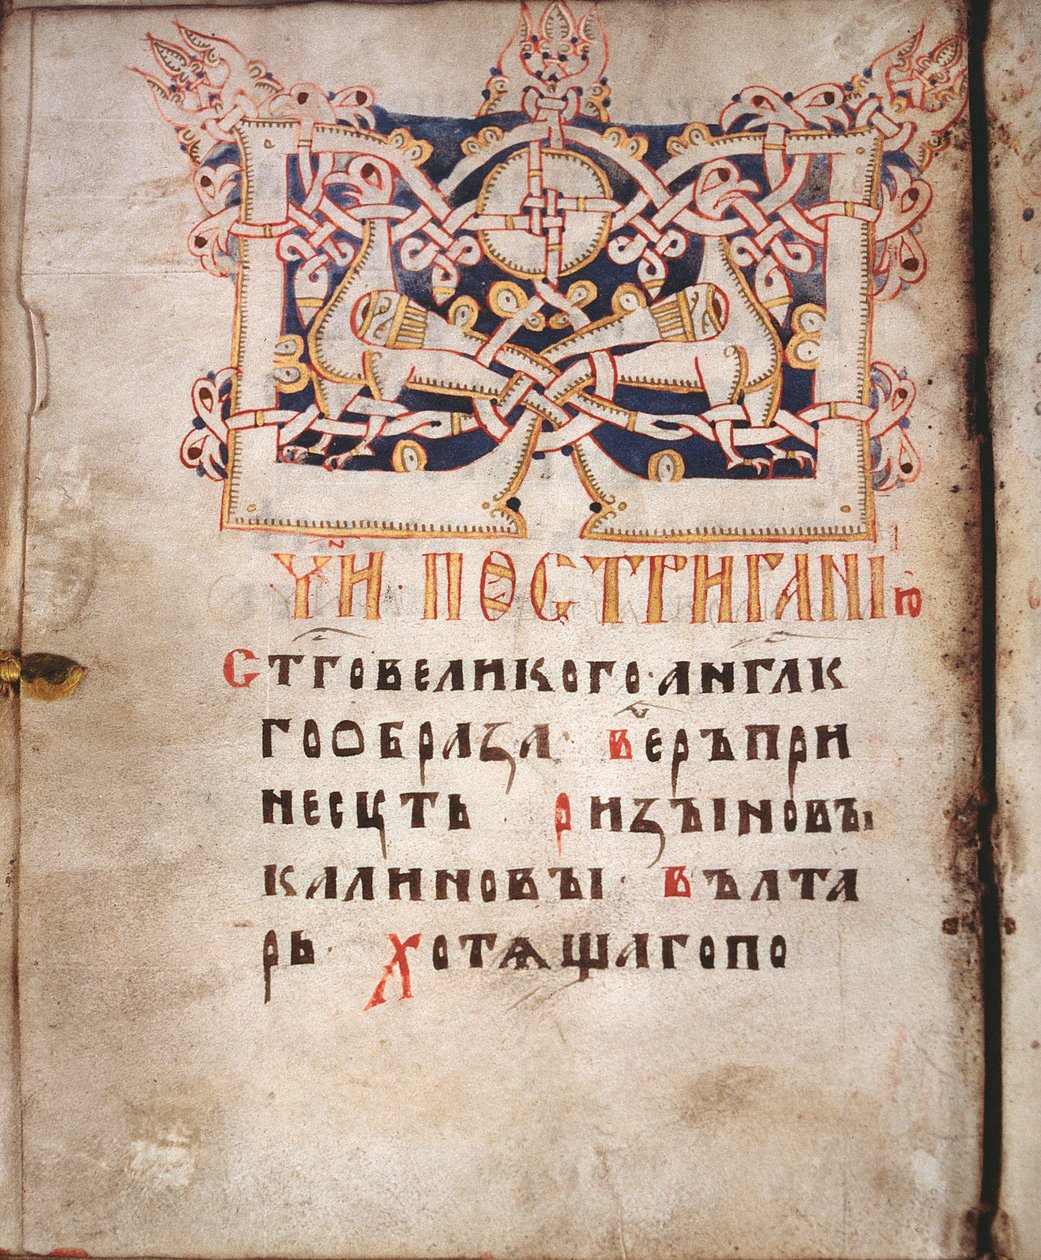 ЧИ҃Н· ПОСТРИГАНІЮ
СТ҃ГО ВЕЛИКОГО· АНГ҃ЛК
ГО ОБРАЗА· ВЕРЪ ПРИ
НЕСЦТЬ РИЗЪІ НОВЪІ
КАЛИНОВЪІ· ВЪЛТА
РЬ· ХОТѦЩАГО ПО